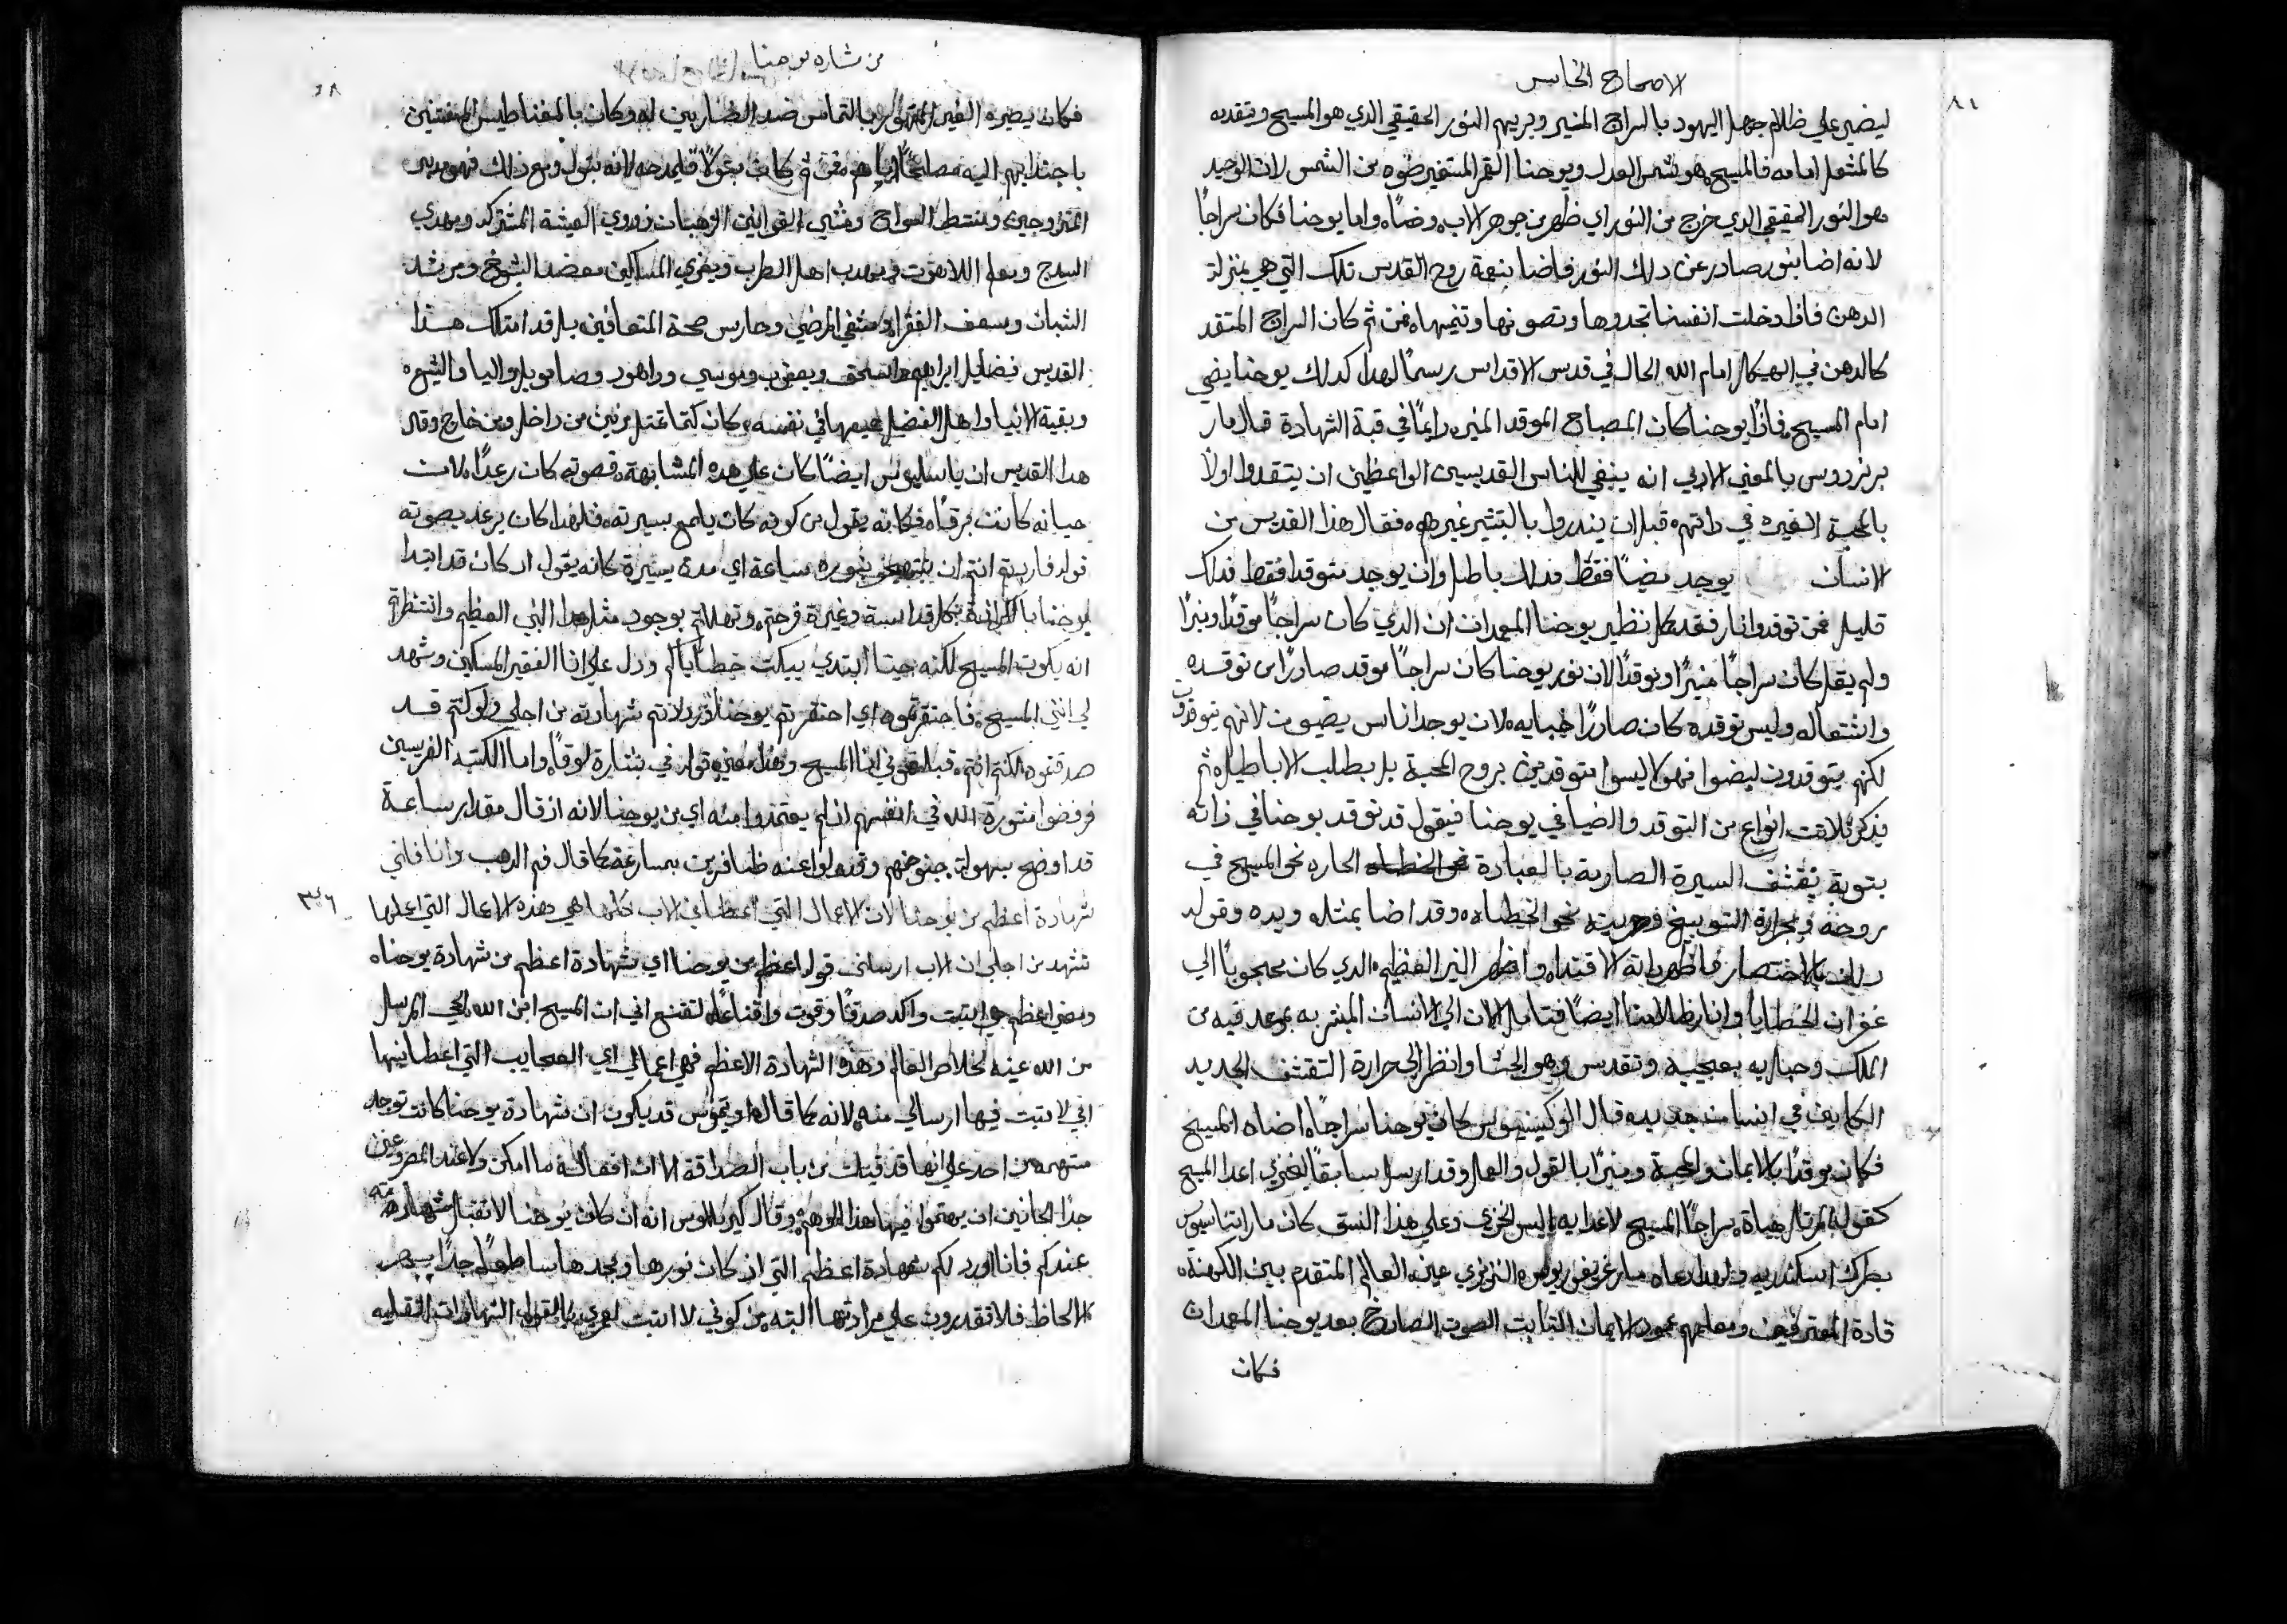 الاصحاح الخامس
٨١
ليضي علي ظلام جهل اليهود بالسراج المنير ويريهم النور الحقيقي الدي هو المسيح وتقدمه
كالمشعل امامه فالمسيح هو شمس العدل ويوحنا القمر المستعير ضوه من الشمس لان الوحيد
هو النور الحقيقي الدي خرج من النور اي ظهر من جوهر الاب وضاء واما يوحنا فكان سراجًا
لانه اضا بنور صادر عن دلك النور فاضا بنعمة روح القدس تلك التي هي بمنزلة
الدهن فاذا دخلت انفسنا تجدوها وتصونها وتنميها فمن ثم كان السراج المتقد
كالدهن في الهيكل امام الله الحال في قدس الاقداس رسمًا لهدا كدلك يوحنا يضي
امام المسيح فاذًا يوحنا كان المصباح الموقد المنير دايمًا في قبة الشهادة قال مار
برنردوس بالمعني الادبي انه ينبغي للناس القديسين الواعظين ان يتقدوا اولًا
بالمحبة الغيره في داتهم قبل ان يندروا بالتبشير غيرهم فقال هذا القديس من
الانسان يوجد يضيًا فقط فدلك باطل وان يوجد متوقدا فقط فدلك
قليل فمن توقد وانار فقد كمل نظير يوحنا المعمدان ان الدي كان سراجًا موقدًا ونيرًا
ولم يقل كان سراجًا منيرًا وموقدًا لان نور يوحنا كان سراجًا موقد صادرًا من توقده
واشتعاله وليس توقده كان صادرًا ضيايه لان يوجد اناس يضيون لانهم يتوقدون
لكنهم يتوقدون ليضوا فهولا ليسوا متوقدين بروح المحبة بل بطلب الاباطيل ثم
يذكر ثلاثت انواع من التوقد والضيا في يوحنا فيقول قد توقد يوحنا في ذاته
بتوبة تقشف السيرة الصارمة بالعبادة نحو الخطاه الحاره نحو المسيح في
روحه وبحرارة التوبيخ نحو الخطاه وقد اضا بمثله ويده وقوله
بالاختصار فاظهر ذاته للاقتدا واظهر النير العظيم الدي كان محجوبًا الي
غفران الخطايا وانار ظلامنا ايضًا فتامل الان الي الانسان المبشر به بموعد فيه من
الملك وحباريه بعجيبه وتقدس وهو في الحشا وانظر الي حرارة التقشف الجديد
في انسان جديد قال كان يوحنا سراجًا اضاه المسيح
فكان موقدًا بالايمان والمحبة ومنيرًا بالقول والعمل وقد ارسل سابقًا ليخزي اعدا المسيح
كقوله المرتل هياة سراجًا المسيح لاعدايه البس الخزي وعلي هذا النسق كان مار اتناسيوس
بطرك اسكندريه ولهدا دعاه مار غريغوريوس النزينزي عين العالم المتقدم بين الكهنه
قادة المعترفين ومعلمهم عمود الايمان التابت الصوت الصارخ بعد يوحنا المعمدان
فكان
من بشاره يوحنا
فكان يصيره الغير المقهور بالتماس ضد الضاربين له وكان بالمغناطيس للمنفتنين
باجتدابهم اليه مصالحًا اياهم فمن ثم كان بتولًا قايمدحه لانه بتول ومع ذلك فهو مدبر
المتزوجين ومنتظم السواح ومنشي القوانين الرهبان ذوي العيشة المشتركه ومهدي
السدج ومعلم اللاهوت ومهدب اهل الطرب ويعزي المساكين معضد الشيوخ ومرشد
الشبان ومسعف الفقرا ومشفي المرضي وحارس صحة المتعافين بل قد امتلك هذا
القديس فضايل ابراهيم واسحق ويعقوب وموسي وداهود وصامويل واليا واليشع
وبقية الانبيا واهل الفضل جميعها في نفسه وكان كتما عمل مزين من داخل ومن خارج وقال
هدا القديس ان باسيليوس ايضًا كان علي هده المشابهة فصوته كان رعدًا لان
حياته كانت برقًا فكانه يقول من كونه كان يلمع بسيرته فلهدا كان يرعد بصوته
قوله فاردتم انتم ان تبتهجوا بنوره ساعة اي مدة يسيرة كانه يقول اد كان قد ابتدا
يوحنا بالكرازة بكل قداسة وغيرة فرحتم وتهللتم بوجود مثل هدا النبي العظيم وانتظرتم
انه يكون المسيح لكنه حينا ابتدي يبكت خطاياكم ودل علي انا الفقير المسكين وشهد
لي انني المسيح فاحتقرتموه اي احتقرتم يوحنا ورذلتم شهادته من اجلي ولو كنتم قد
صدقتموه لكنتم انتم قبلتموني انا المسيح وهدا معني قوله في بشارة لوقا واما الكتبة الفريسين
فرفضوا مشورة الله في انفسهم اذ لم يعتمدوا منه اي من يوحنا لانه اذ قال مقدار ساعة
قد اوضح بسهولة جنوحهم وتحولوا عنه ظافرين بمسارعة كما قال فم الدهب وانا فلي
شهادة اعظم من يوحنا لان الاعمال التي اعطاني الاب لكملها هي هذه الاعمال التي اعملها
٣٦
تشهد من اجلي ان الاب ارسلني قوله اعظم من يوحنا اي شهادة اعظم من شهادة يوحنا
ومعني اعظم هي اتبت واكد صدقًا وقوة واقناعًا لتقنع اني ان المسيح ابن الله الحي المرسل
من الله عينه لخلاص العالم وهذه الشهادة الاعظم فهي اعمالي اي العجايب التي اعطانيها
ابي لاتبت فيها ارسالي منه لانه كما قال قد يكون ان شهادة يوحنا كانت توجد
متهمه من احد علي انها قد قيلت من باب الصداقة الا ان افعاله ما امكن ولا عند المصروعين
جدًا المجانين ان يتهموا فيها هذا الوهم وقال كيرللوس انه ان كان يوحنا لا تقبل شهادته
عندكم فانا اورد لكم شهادة اعظم التي اذ كان نورها ومجدها ساطعًا جدًا يبهر
الالحاظ فلا تقدرون علي مرادتها البته من كوني لا اتبت لعزي بالقول الشهادات العقليه